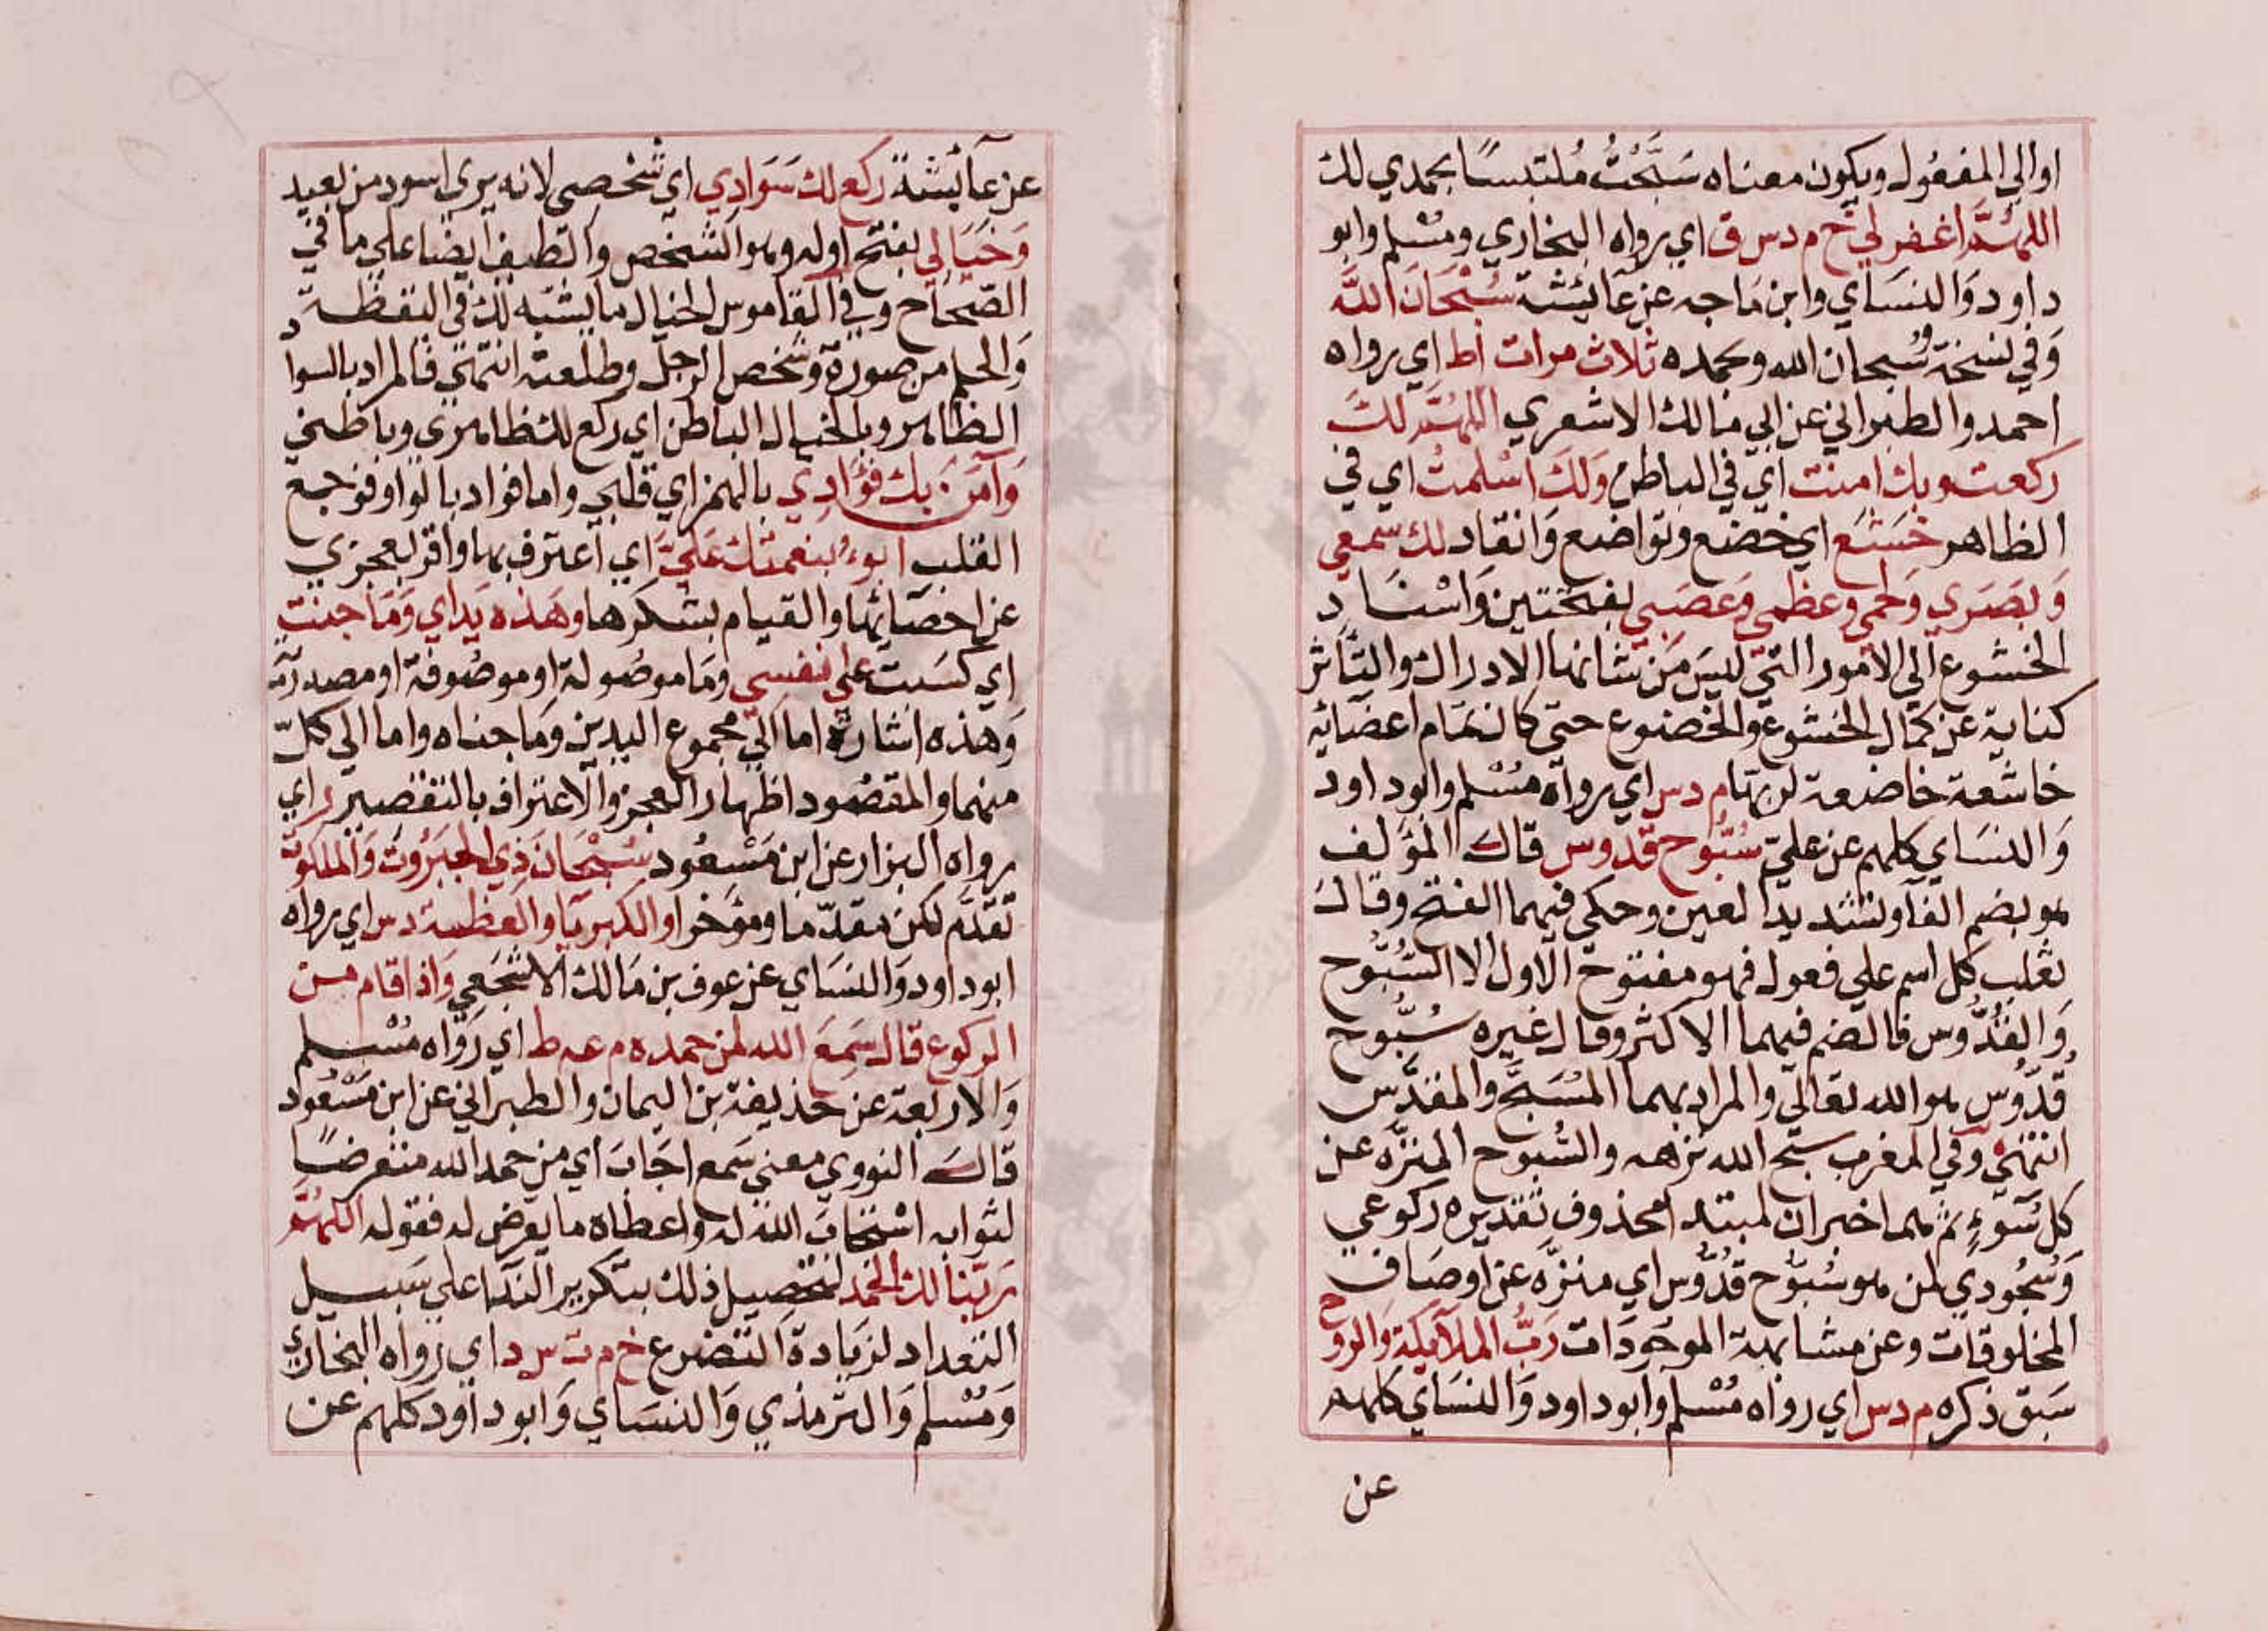 او الي المفعول ويكون معناه سَبَّحْتُ مُلتبسًا بحمدي لك
اللهُمَّ اغفر لي خ م د س ق اي رواه البخاري ومسْلم وابو
داود وَالنسَاي وابن مَاجه عن عَايشة سُبْحَانَ اللَّه
وَفي نسخة سُبحان الله وبحمده ثلاث مرات أ ط اي رواه
احمد والطبراني عن ابي مالك الاشعري اللهُمَّ لكَ
ركعت وبك امنت اي في الباطن وَلكَ اسْلمتُ اي في
الظاهر خَشَعَ اي خضع وتواضع وَانقاد لك سمعي
وَبصَري وَلحمي وعظمي وَعصَبي بفتحتين وَاسْناد
الخشوع الي الامور التي ليسَ مَن شانها الادراك والتأثر
كناية عن كمال الخشوع والخضوع حتي كان تمام اعضَائه
خاشعة خاضعة لربهَا م د س اي رواه مسْلم وابو داود
وَالنسَاي كلهم عن عليّ سُبّوح قدوس قال المؤلف
هو بضم الفآ وتشديد العين وحكي فيهما الفتح وقال
ثعلب كل اسم علي فعول فهو مفتوح الاول الا السُّبُّوح
وَالقُدُّوس فالضم فيهما الاكثر وقال غيره سُبُّوح
قُدّوُس هو الله تعالي والمراد بهما المُسَبَّح والمقدَّس
انتهي وفي المغرب سبّح الله نزهه والسُّبوح المنزّه عن
كل سُوءٍ ثم هما اخبران لمبتدا محذوف تقديره ركوعي
وَسُجُودي لمن هو سُبُّوح قدُّوس اي منزَّه عن اوصَاف
المخلوقات وعن مشابهة الموجودَات رَبُّ الملآيكة وَالروح
سَبق ذكره م د س اي رواه مُسْلم وَابو داود وَالنسَاي كلهم
عن
عن عَآيشة ركع لك سَوَادِي اي شخصي لانه يرى اسود من بعيد
وَخيَالي بفتح اوله وهو الشخص والطيف ايضا علي ما في
الصّحَاح وفي القاموس الخيال ما يشبّه لك في اليقظة
وَالحلم من صورة وشخص الرجل وطلعته انتهي فالمراد بالسواد
الظاهر وبالخيال الباطن اي ركع لك ظاهري وباطني
وَآمَنَ بك فؤَادِي بالهمز اي قلبي واما فواد بالواو فوجع
القلب ابوءُ بنعمتك عَليَّ اي اعترف بها واقر بعجزي
عن احصَائها والقيام بشكرها وهَذه يَداي وَمَا جنت
اي كسَبت علي نفسي ومَا موصُولة او موصُوفة او مصدريّة
وَهذه اشارة اما اليّ مجموع اليدين وَما جناه واما الي كلّ
منهما والمقصُود اظهار العجز والاعتراف بالتقصير ر اي
رواه البزار عن ابن مَسْعُود سُبْحَانَ ذي الجَبَرُوتَ وَالملكوت
تقَدَّم لكن مقدّما ومؤخرا والكبريَا والعظمة د س اي رواه
ابو داود وَالنسَاي عن عوف بن مَالك الاشجَعي وَاذا قام من
الركوع قال سَمِعَ الله لمن حمده م عه ط اي رَوَاه مُسْلم
وَالاربعة عن حذيفة بن اليمان والطبراني عن ابن مَسْعُود
قال النووي معني سَمع اجَابَ اي من حمد الله متعرضًا
لثوابه اسْتجَابَ الله له واعطاه ما يعرض له فقوله اللهُمَّ
رَبّنا لك الحَمد لتحصيل ذلك بتكرير الندَا علي سَبيل
التعداد لزيَادة التضرع خ م ت س د اي رواه البخاري
وَمُسْلم وَالترمذي وَالنسَاي وَابو داود كلهم عن